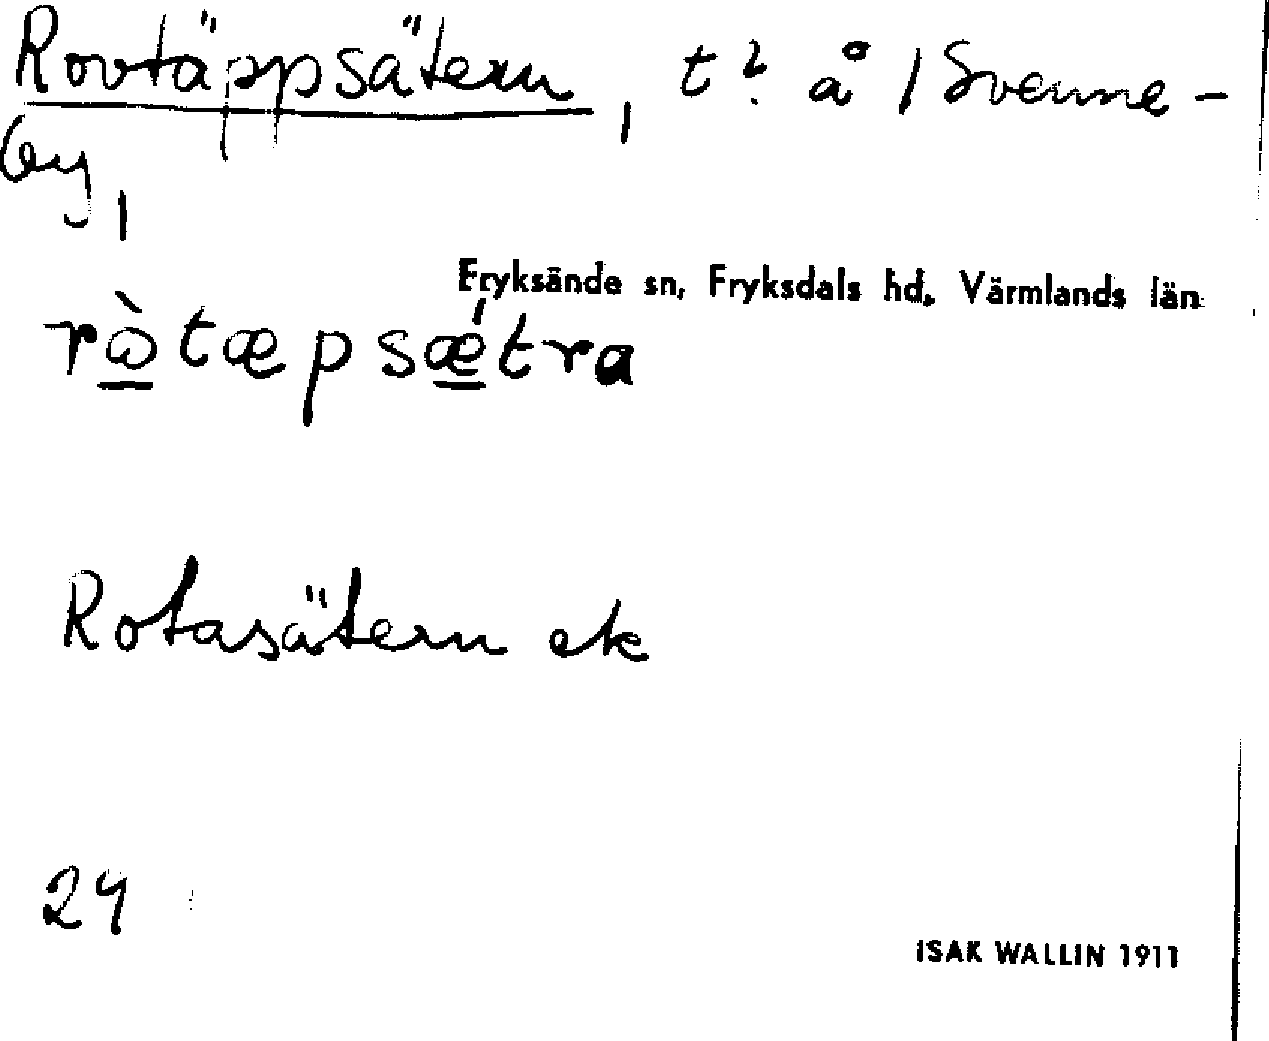 Rovtäppsätern, t? å / Svenne-
by,
Fryksände sn, Fryksdals hd, Värmlands län
rò̲tæpsǽ̲tra
Rotasätern ek
24
ISAK WALLIN 1911